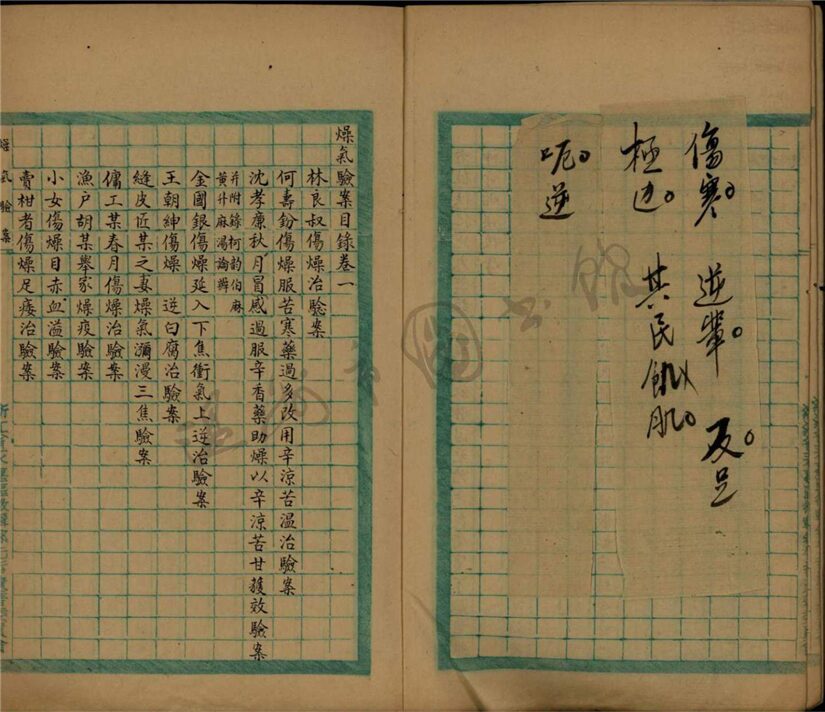 傷寒。 逆輩。 及足
極边。 其民飢肌。
呃。逆
燥氣驗案目錄卷一
林良叔傷燥治驗案
何壽鈖傷燥服苦寒藥過多改用辛涼苦溫治驗案
沈孝廉秋月冒感過服辛香藥助燥以辛涼苦甘獲效驗案
并附錄柯韵伯麻
黃升麻湯論辨
金國銀傷燥延入下焦衝氣上逆治驗案
王朝紳傷燥 逆白腐治驗案
縫皮匠某之妻燥氣瀰漫三焦驗案
傭工某春月傷燥治驗案
漁戶胡某舉家燥疫驗案
小女傷燥目赤血溢驗案
賣柑者傷燥足痿治驗案
燥氣驗案